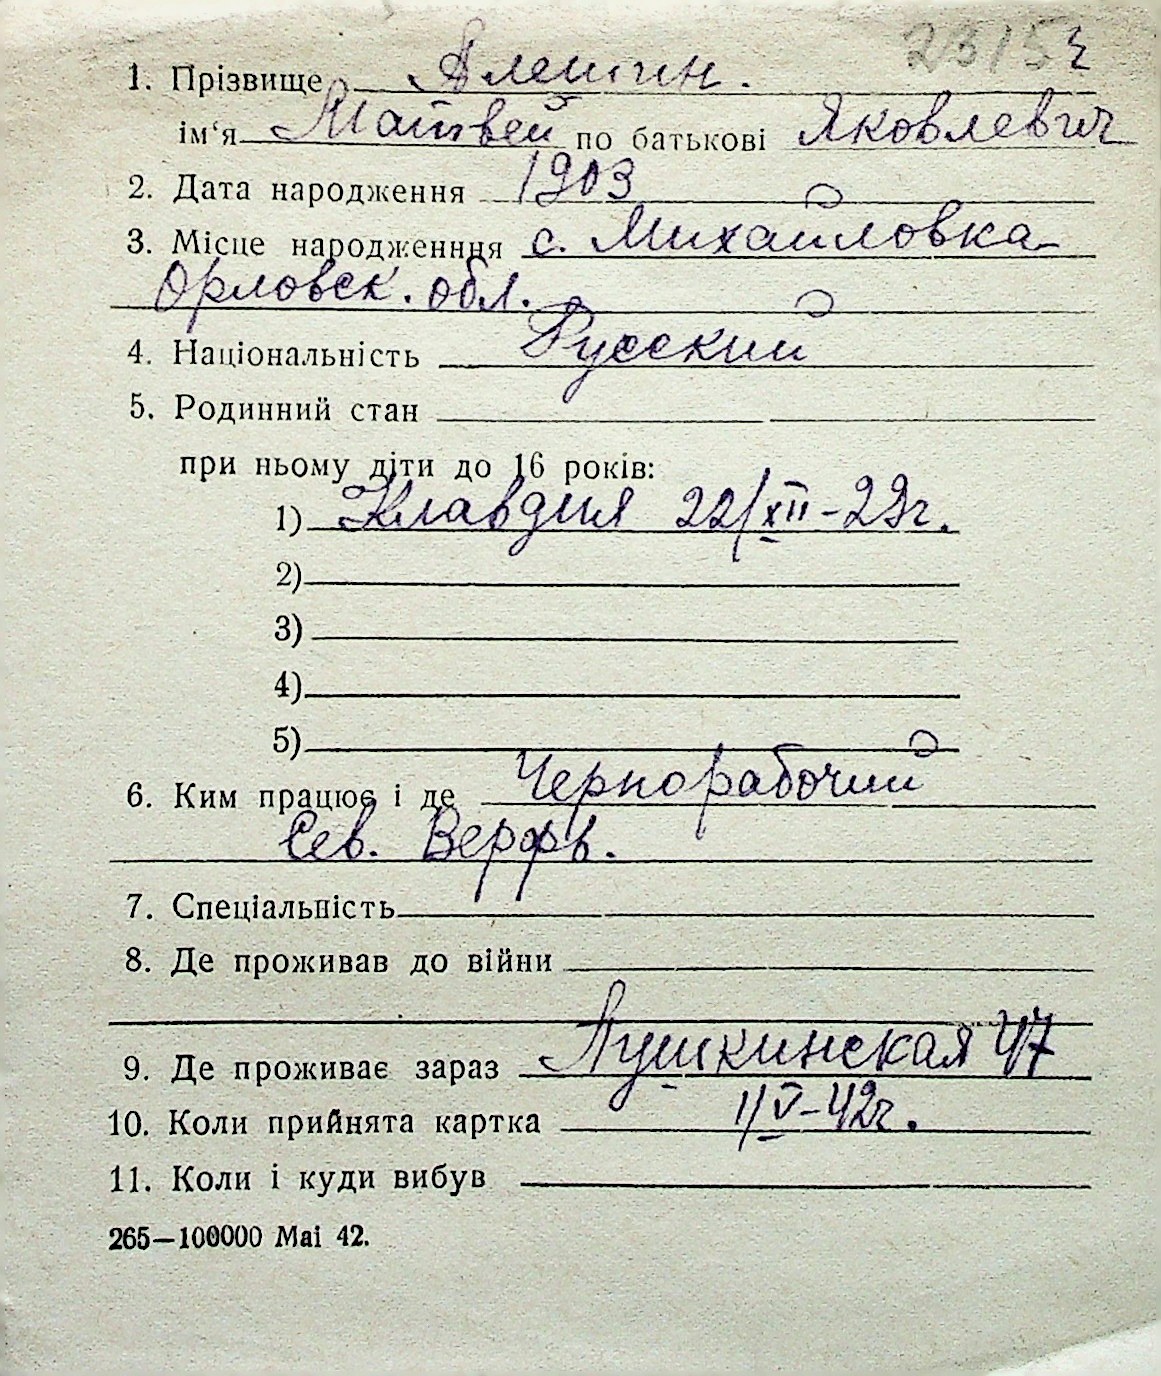 2315
1. Прізвище Алешин.
ім‘я Матвей по батькові Яковлевич
2. Дата народження 1903
3. Місце народженння с. Михайловка
Орловск. обл.
4. Національність Русский
5. Родинний стан
при ньому діти до 16 років:
1) Клавдия 22/XII-29г.
2)
3)
4)
5)
6. Ким працює і де Чернорабочий
Сев. Верфь.
7. Спеціальність
8. Де проживав до війни
9. Де проживає зараз Пушкинская 47
10. Коли прийнята картка 1/V-42г.
11. Коли і куди вибув
265—100000 Mai 42.